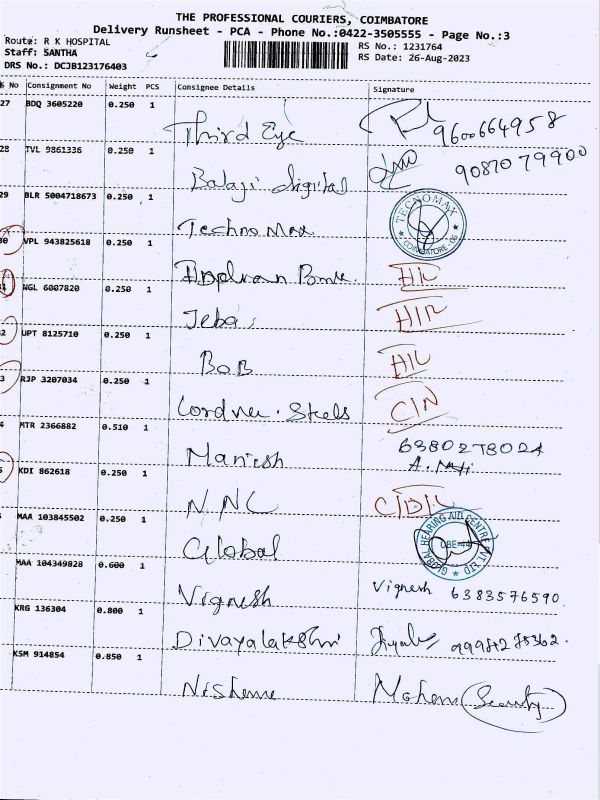 THE PROFESSIONAL COURIERS, COIMBATORE
Delivery Runsheet - PCA - Phone No.:0422-3505555 - Page No.:3
Route: R K HOSPITAL
Staff: SANTHA
DRS No.: DCJB123176403
RS No.: 1231764
RS Date: 26-Aug-2023
S No Consignment No Weight PCS Consignee Details Signature
27 BDQ 3605220 0.250 1
Third Eye 9600664958
28 TVL 9861336 0.250 1
Balaji digital 9087079900
29 BLR 5004718673 0.250 1
Techno Max TECNOMAX COIMBATORE
30 VPL 943825618 0.250 1
NGL 6007820 0.250 1
Jeba
2 UPT 8125710 0.250 1
BOB
3 RJP 3207034 0.250 1
Steels
4 MTR 2366882 0.510 1
Manish 6380278024
KDI 862618 0.250 1
MAA 103845502 0.250 1
Global GLOBAL HEARING AID CENTRE PVT LTD
MAA 104349828 0.600 1
Vignesh Vignesh 6383576590
KRG 136304 0.800 1
KSM 914854 0.850 1